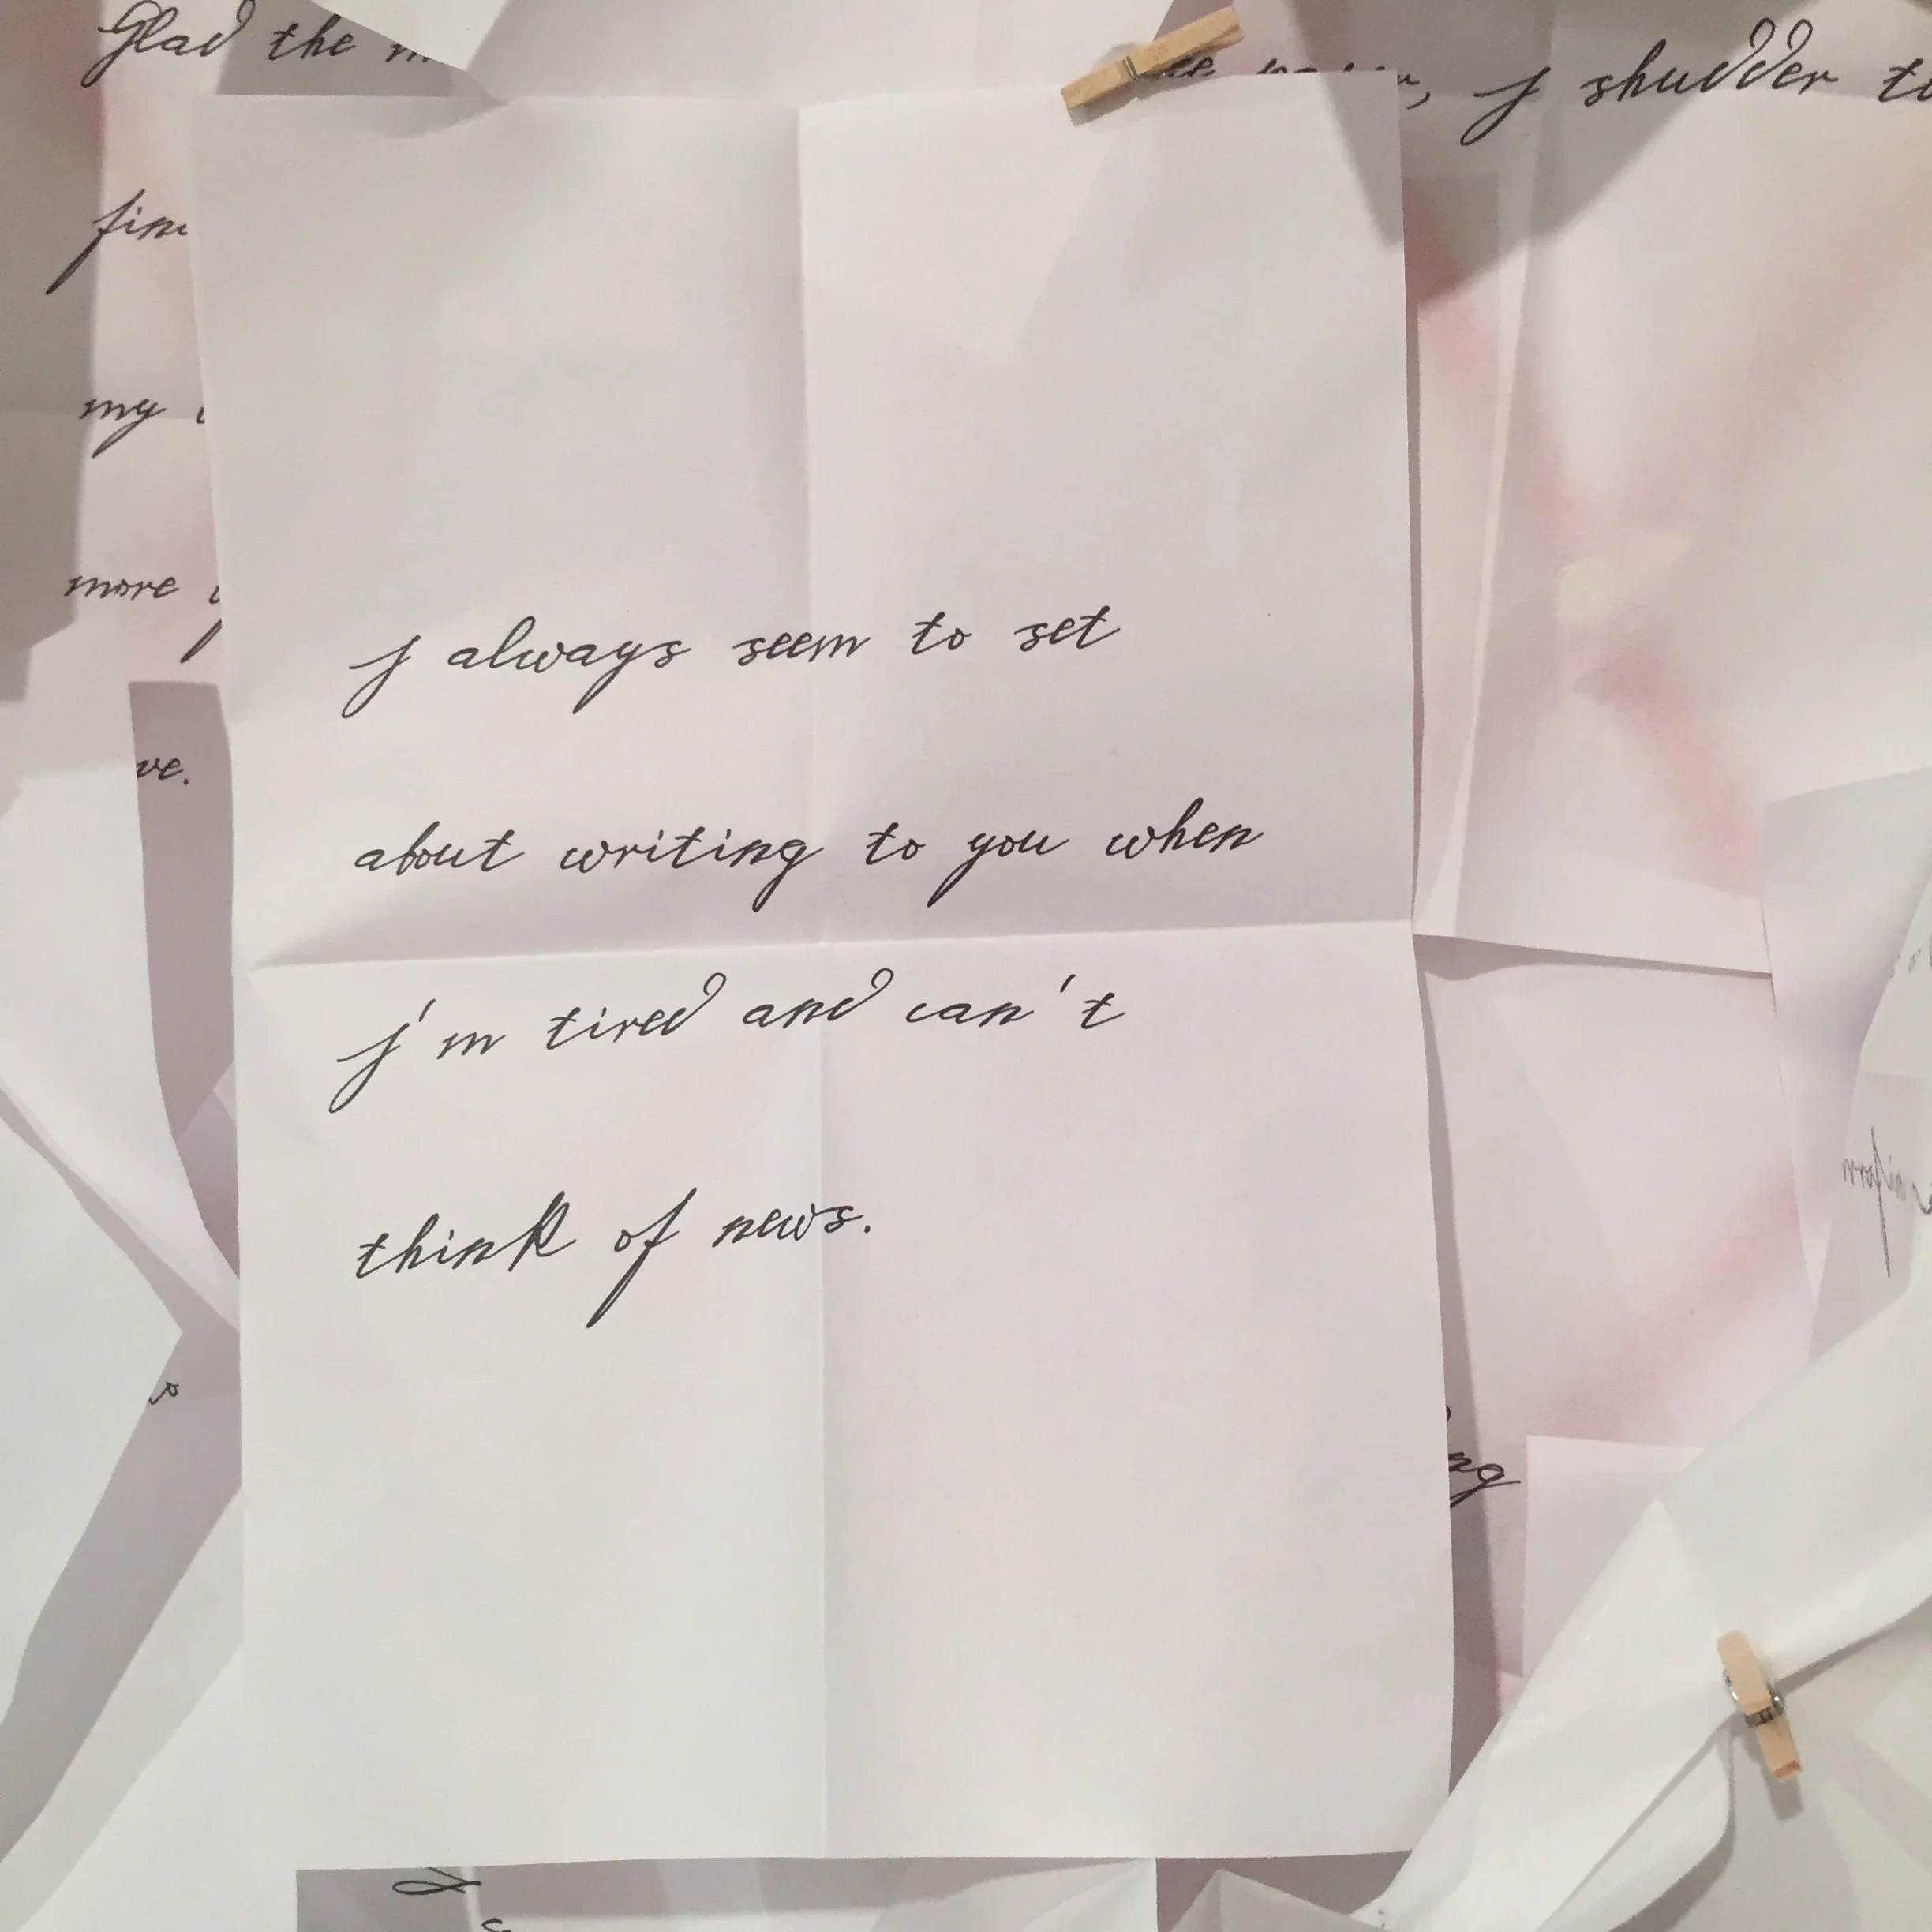 Glad the
I shudder
my
more
I always seem to set
about writing to you when
I'm tired and can't
think of news.